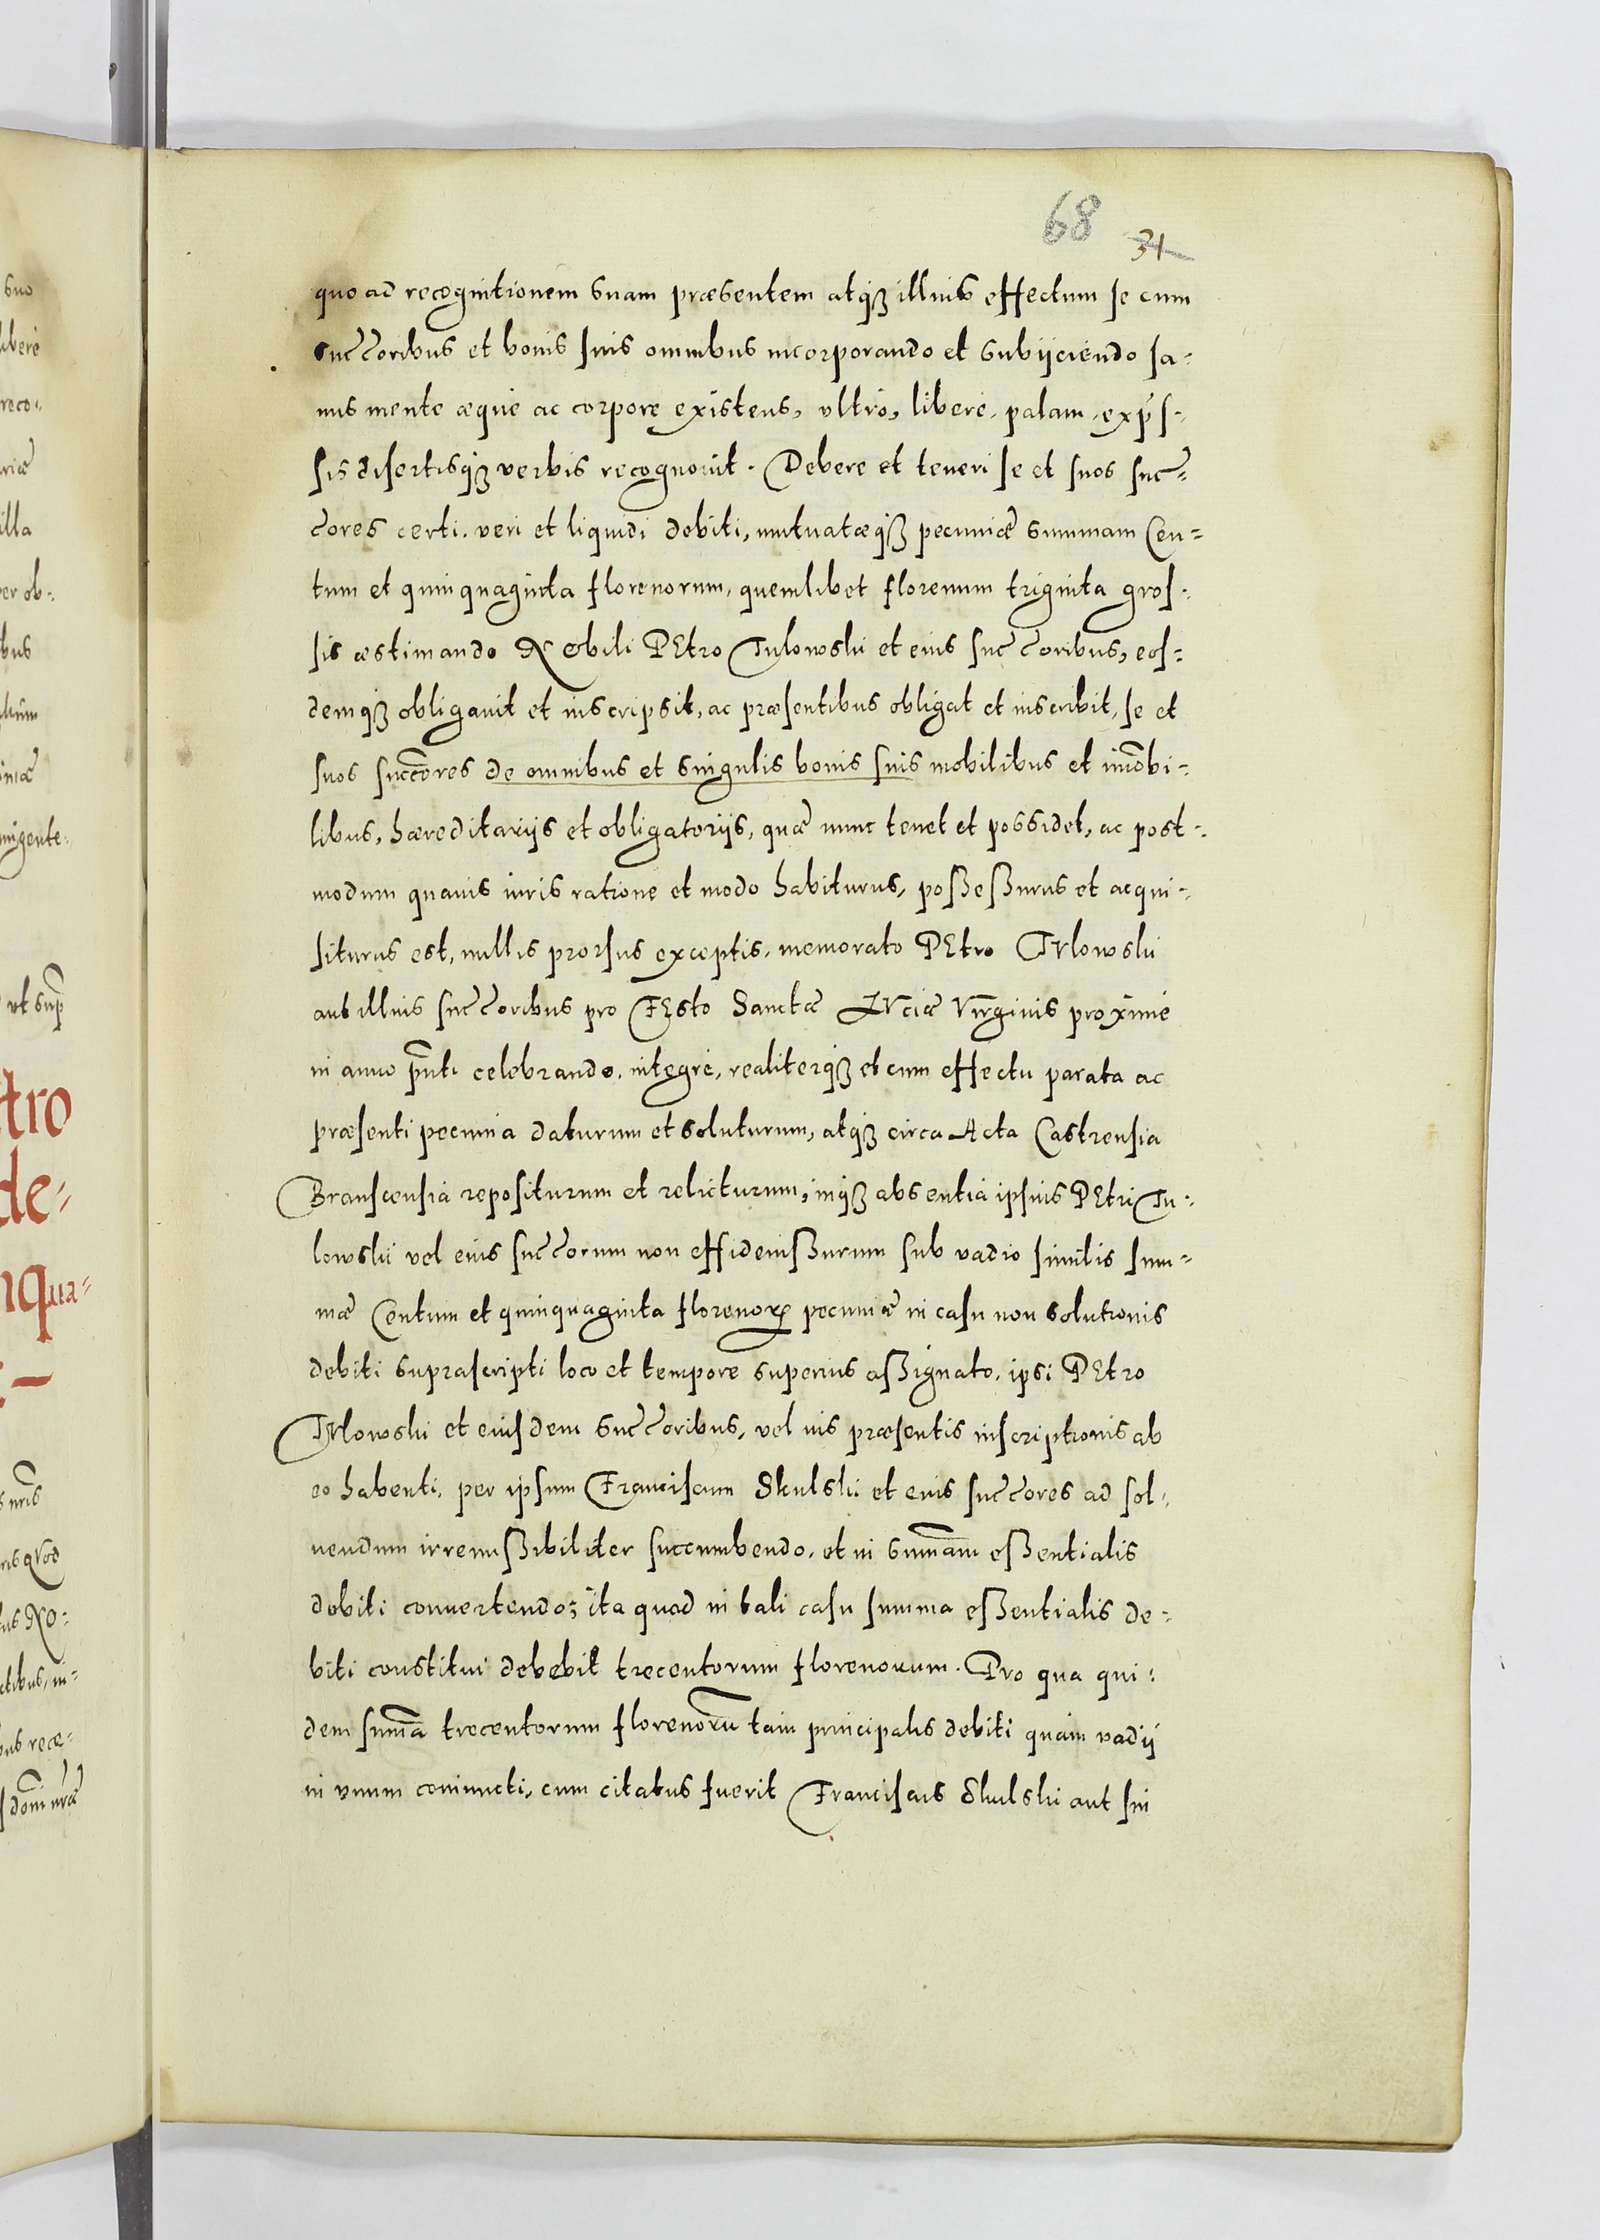 68 31
quo ad recognitionem suam præsentem atqȝ illius effectum se cum
succ̃oribus et bonis suis omnibus incorporando et subijciendo sa-
nus mente æque ac corpore existens, vltro, libere, palam, exp̃s-
sis disertisqȝ verbis recognouit. Debere et teneri se et suos succ̃-
ores certi, veri et liquidi debiti, mutuatæqȝ pecuniæ summam Cen-
tum et quinquaginta florenorum, quemlibet florenum triginta gros-
sis æstimando Nobili PEtro Tulowski et eius succ̃oribus, eos-
demqȝ obligauit et inscripsit, ac præsentibus obligat et inscribit, se et
suos succ̃ores de omnibus et singulis bonis suis mobilibus et im̃obi-
libus, hæreditarijs et obligatorijs, quæ nunc tenet et possidet, ac post-
modum quauis iuris ratione et modo habiturus, poßeßurus et acqui-
siturus est, nullis prorsus exceptis, memorato PEtro TVlowski
aut illius succ̃oribus pro FEsto Sanctæ LVciæ Virginis proxime
in anno p̃nti celebrando, integre, realiterqȝ et cum effectu parata ac
præsenti pecunia daturum et soluturum, atqȝ circa Acta Castrensia
Branscensia repositurum et relicturum, inqȝ absentia ipsius PEtri Tu-
lowski vel eius succ̃orum non effidemißurum sub vadio similis sum-
mæ Centum et quinquaginta florenoꝝ pecuniæ in casu non solutionis
debiti suprascripti loco et tempore superius aßignato, ipsi PEtro
TVlowski et eiusdem succ̃oribus, vel ius præsentis inscriptionis ab
eo habenti, per ipsum Franciscum Skulski et eius succ̃ores ad sol-
uendum irremißibiliter succumbendo, et in sum̃am eßentialis
debiti conuertendo; ita quod in tali casu summa eßentialis de-
biti constitui debebit trecentorum florenorum. Pro qua qui-
dem sum̃a trecentorum florenorũ tam principalis debiti quam vadij
in vnum coniuncti, cum citatus fuerit Franciscus Skulski aut sui